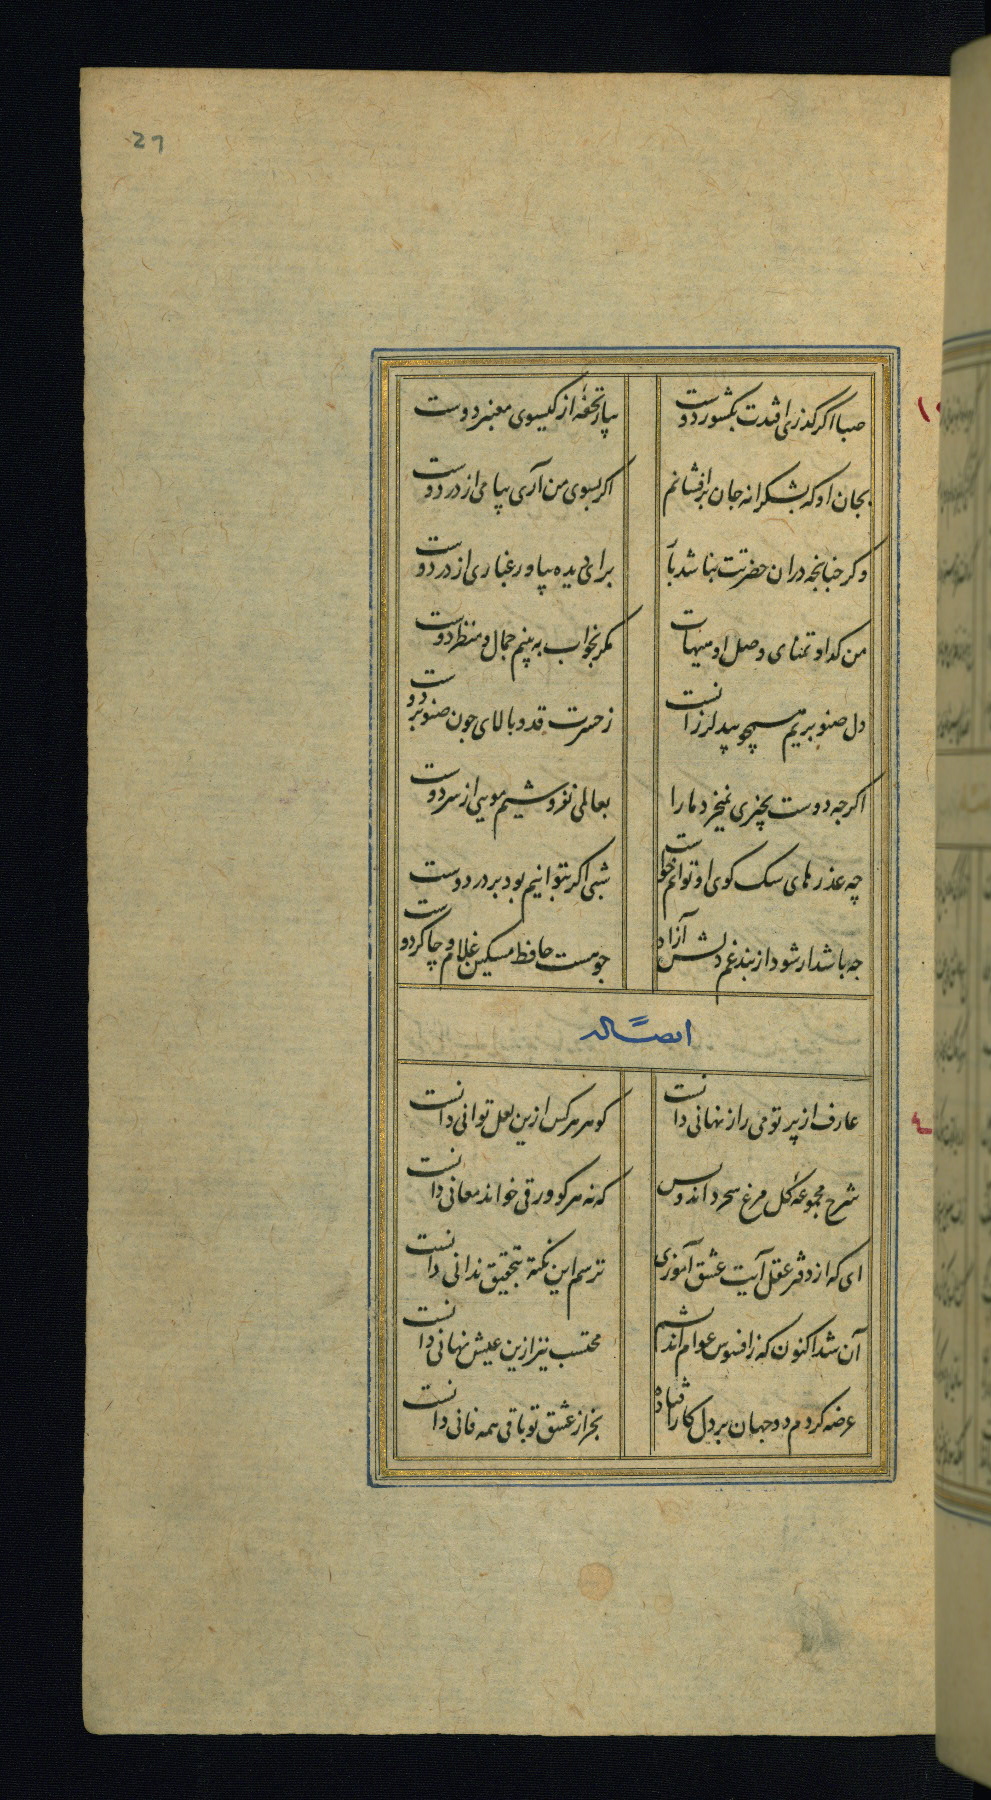 27
صبا اگر گذری افتدت بکشور دوست بیار تحفهٔ از گیسوی معنبر دوست
بجان او که بشکرانه جان برافشانم اگر بسوی من آری پیامی از در دوست
وگر چنانچه دران حضرتت نباشد بار برای دیده بیاور غباری از در دوست
من گدا و تمنای وصل او هیهات مگر بخواب به بینم جمال و منظر دوست
دل صنوبریم همچو بید لرزانست ز حسرت قد و بالای چون صنوبر دوست
اگرچه دوست بچیزی نمیخرد ما را بعالمی نفروشیم مویی از سر دوست
چه عذرهای سگ کوی او توانم خواست شبی اگر بتوانیم بود بر در دوست
چه باشد ار شود از بند غم دلش آزاد چو هست حافظ مسکین غلام و چاکر دوست
ایضاً له
عارف از پرتو می راز نهانی دانست گوهر هر کس ازین لعل توانی دانست
شرح مجموعهٔ گل مرغ سحر داند و بس که نه هر کو ورقی خواند معانی دانست
ای که از دفتر عقل آیت عشق آموزی ترسم این نکته بتحقیق ندانی دانست
آن شد اکنون که ز افسوس عوام اندیشم محتسب نیز ازین عیش نهانی دانست
عرضه کردم دو جهان بر دل کار افتاده بجز از عشق تو باقی همه فانی دانست